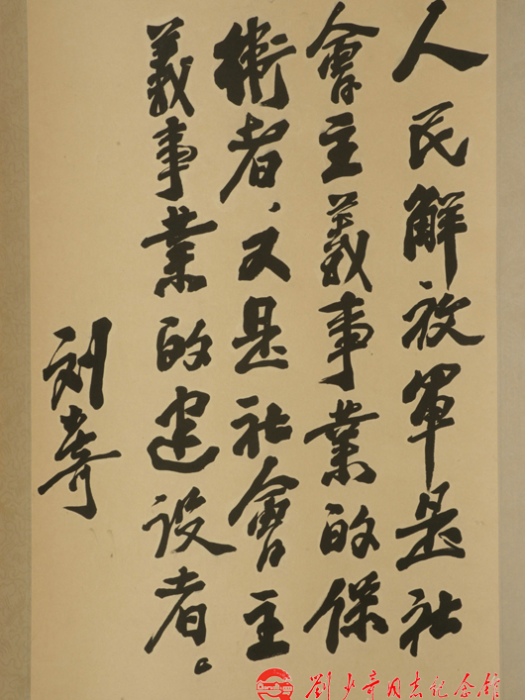 人民解放軍是社
會主義事業的保
衛者，又是社會主
義事業的建设者。
刘少奇
劉少奇同志紀念館